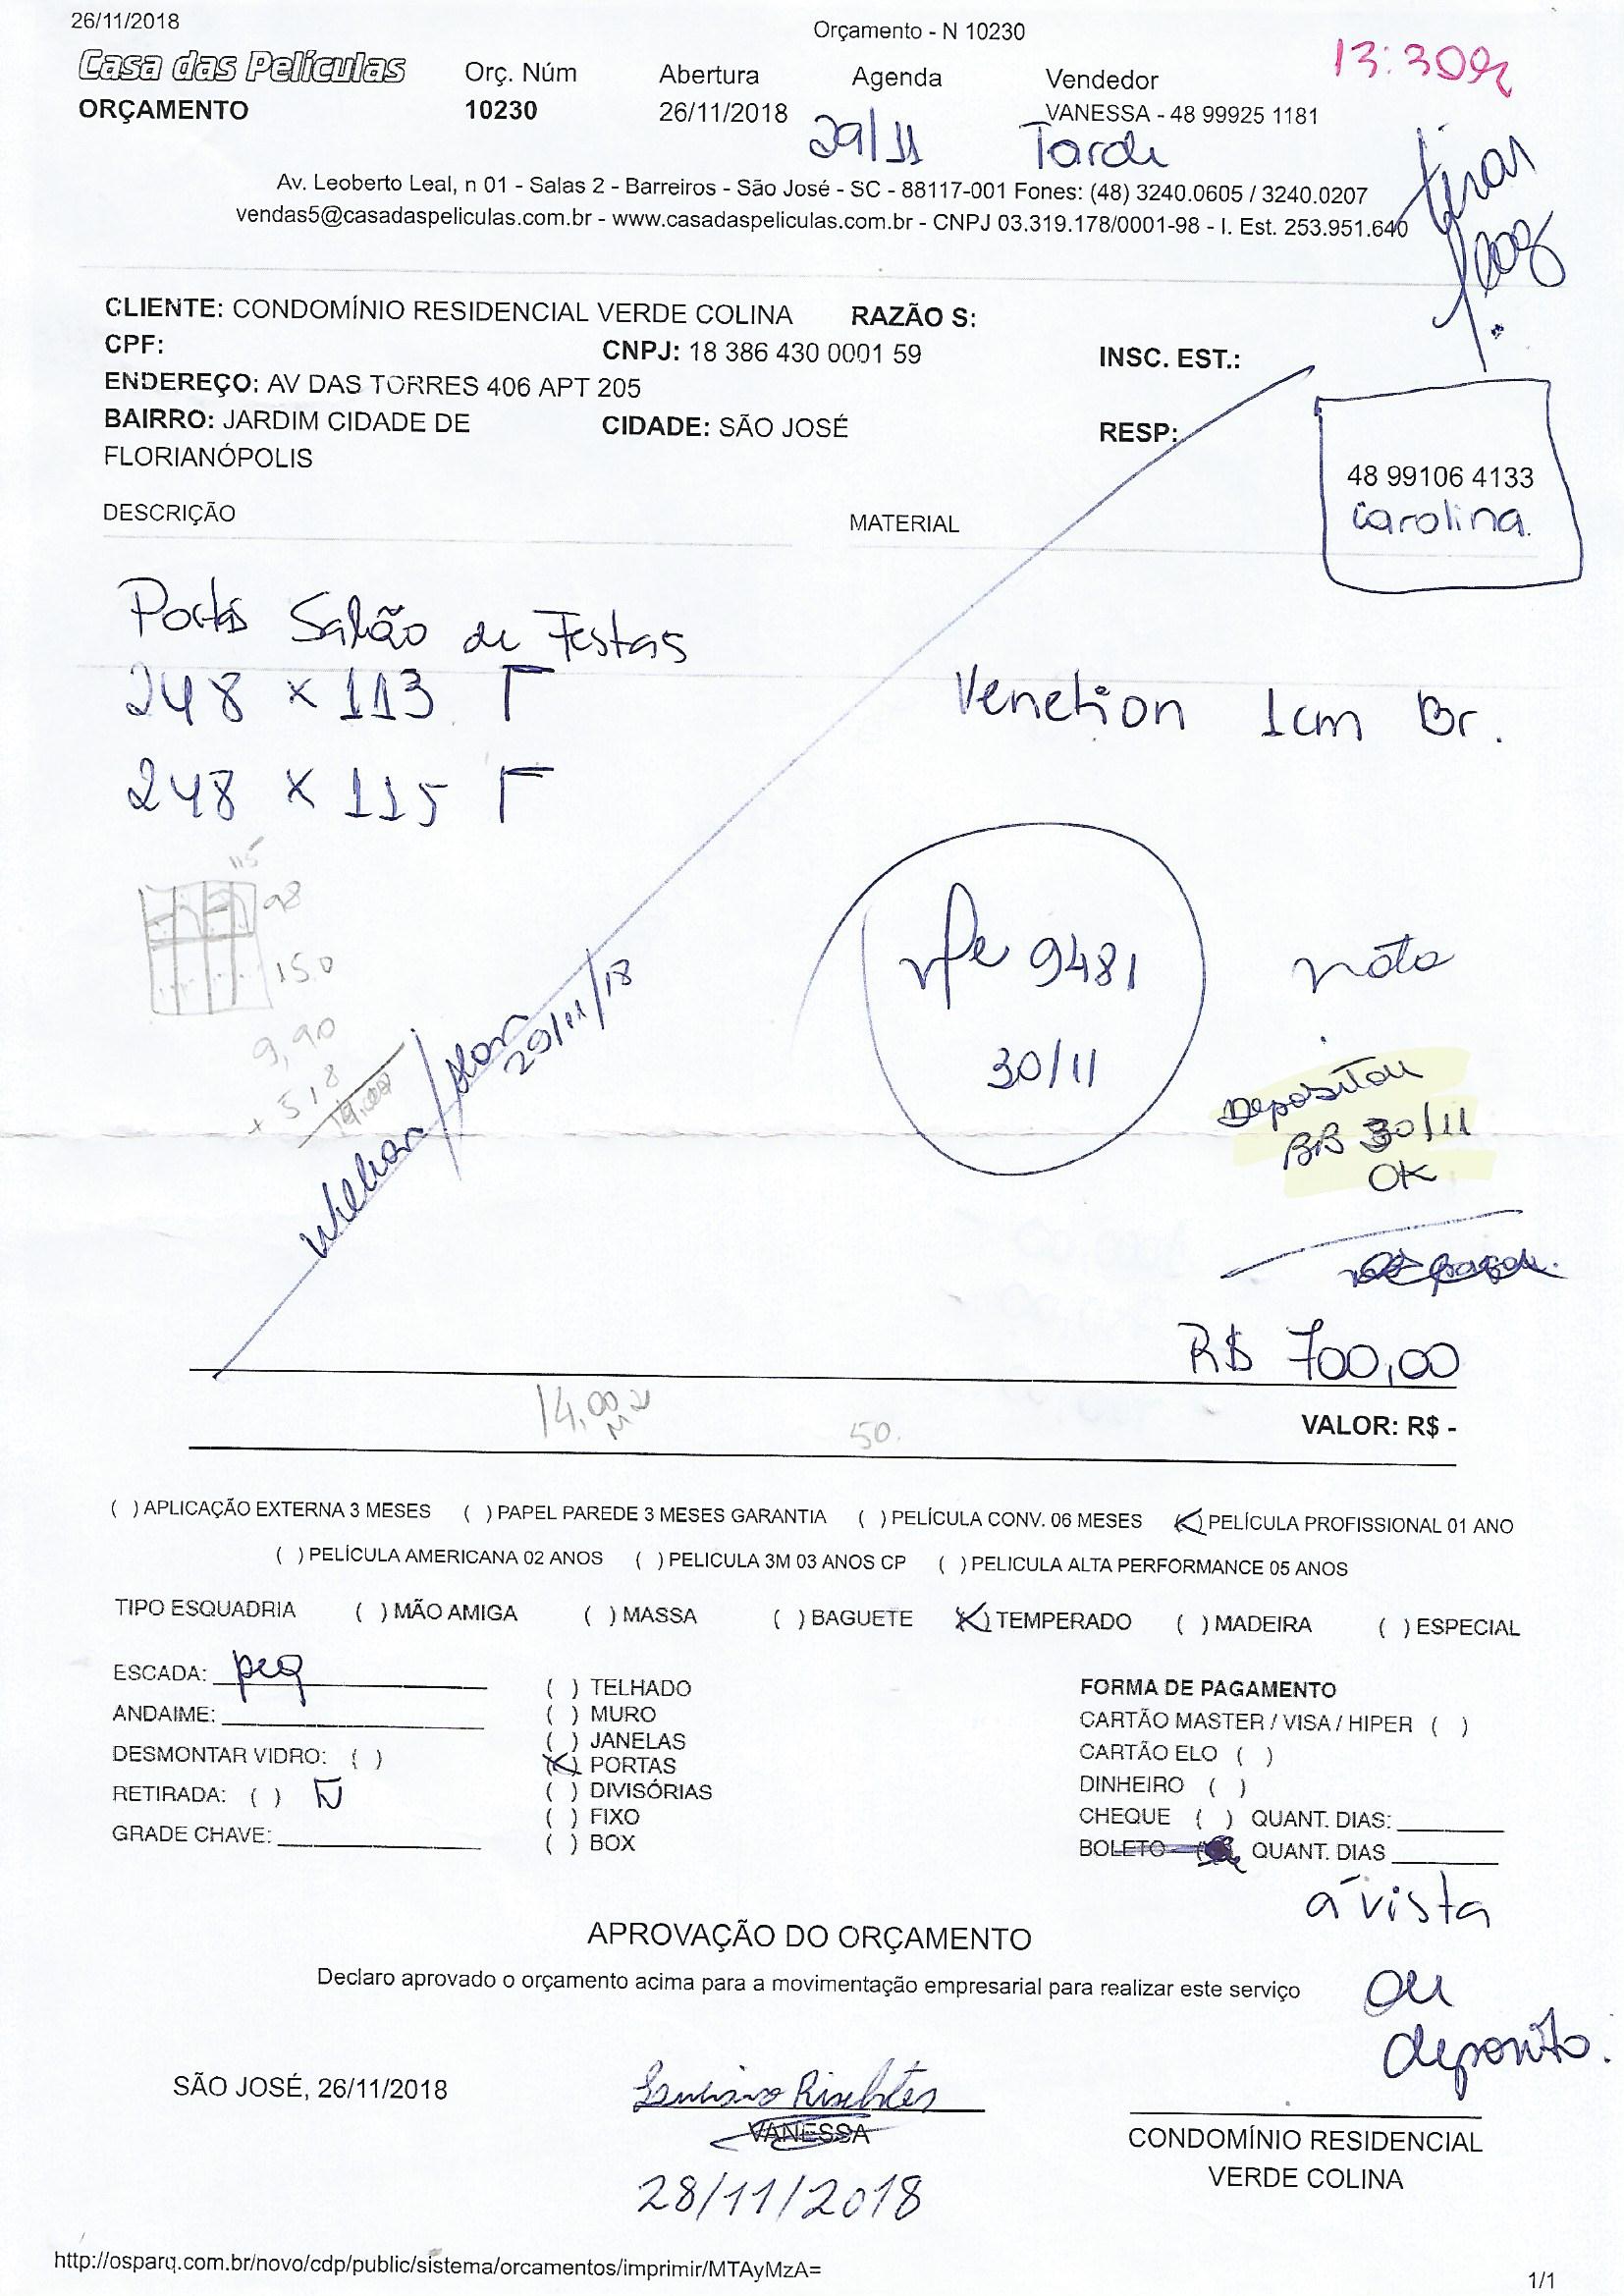 26/11/2018
Orçamento - N 10230
13:30
Casa das Películas
Orç. Núm
Abertura
Agenda
Vendedor
ORÇAMENTO
10230
26/11/2018
VANESSA - 48 99925 1181
29/11
Tarde
tirar
Av. Leoberto Leal, n 01 - Salas 2 - Barreiros - São José - SC - 88117-001 Fones: (48) 3240.0605 / 3240.0207
vendas5@casadaspeliculas.com.br - www.casadaspeliculas.com.br - CNPJ 03.319.178/0001-98 - I. Est. 253.951.640
CLIENTE: CONDOMÍNIO RESIDENCIAL VERDE COLINA
RAZÃO S:
CPF:
CNPJ: 18 386 430 0001 59
INSC. EST.:
ENDEREÇO: AV DAS TORRES 406 APT 205
BAIRRO: JARDIM CIDADE DE
CIDADE: SÃO JOSÉ
RESP:
FLORIANÓPOLIS
48 99106 4133
Carolina.
DESCRIÇÃO
MATERIAL
Portas Salão de Festas
248 x 113
Venetion 1cm Br.
248 x 115
115
98
150
nfe 9481
nota
29/11/18
30/11
9,90
+ 5,8
Depositou
BB 30/11
OK
R$ 700,00
14,00 M2
50.
VALOR: R$ -
( ) APLICAÇÃO EXTERNA 3 MESES ( ) PAPEL PAREDE 3 MESES GARANTIA ( ) PELÍCULA CONV. 06 MESES (X) PELÍCULA PROFISSIONAL 01 ANO
( ) PELÍCULA AMERICANA 02 ANOS ( ) PELICULA 3M 03 ANOS CP ( ) PELICULA ALTA PERFORMANCE 05 ANOS
TIPO ESQUADRIA ( ) MÃO AMIGA ( ) MASSA ( ) BAGUETE (X) TEMPERADO ( ) MADEIRA ( ) ESPECIAL
ESCADA: peq
ANDAIME:
DESMONTAR VIDRO: ( )
RETIRADA: ( ) N
GRADE CHAVE:
( ) TELHADO
( ) MURO
( ) JANELAS
(X) PORTAS
( ) DIVISÓRIAS
( ) FIXO
( ) BOX
FORMA DE PAGAMENTO
CARTÃO MASTER / VISA / HIPER ( )
CARTÃO ELO ( )
DINHEIRO ( )
CHEQUE ( ) QUANT. DIAS:
BOLETO QUANT. DIAS
á vista
ou
deposito.
APROVAÇÃO DO ORÇAMENTO
Declaro aprovado o orçamento acima para a movimentação empresarial para realizar este serviço
SÃO JOSÉ, 26/11/2018
VANESSA
28/11/2018
CONDOMÍNIO RESIDENCIAL
VERDE COLINA
http://osparq.com.br/novo/cdp/public/sistema/orcamentos/imprimir/MTAyMzA=
1/1